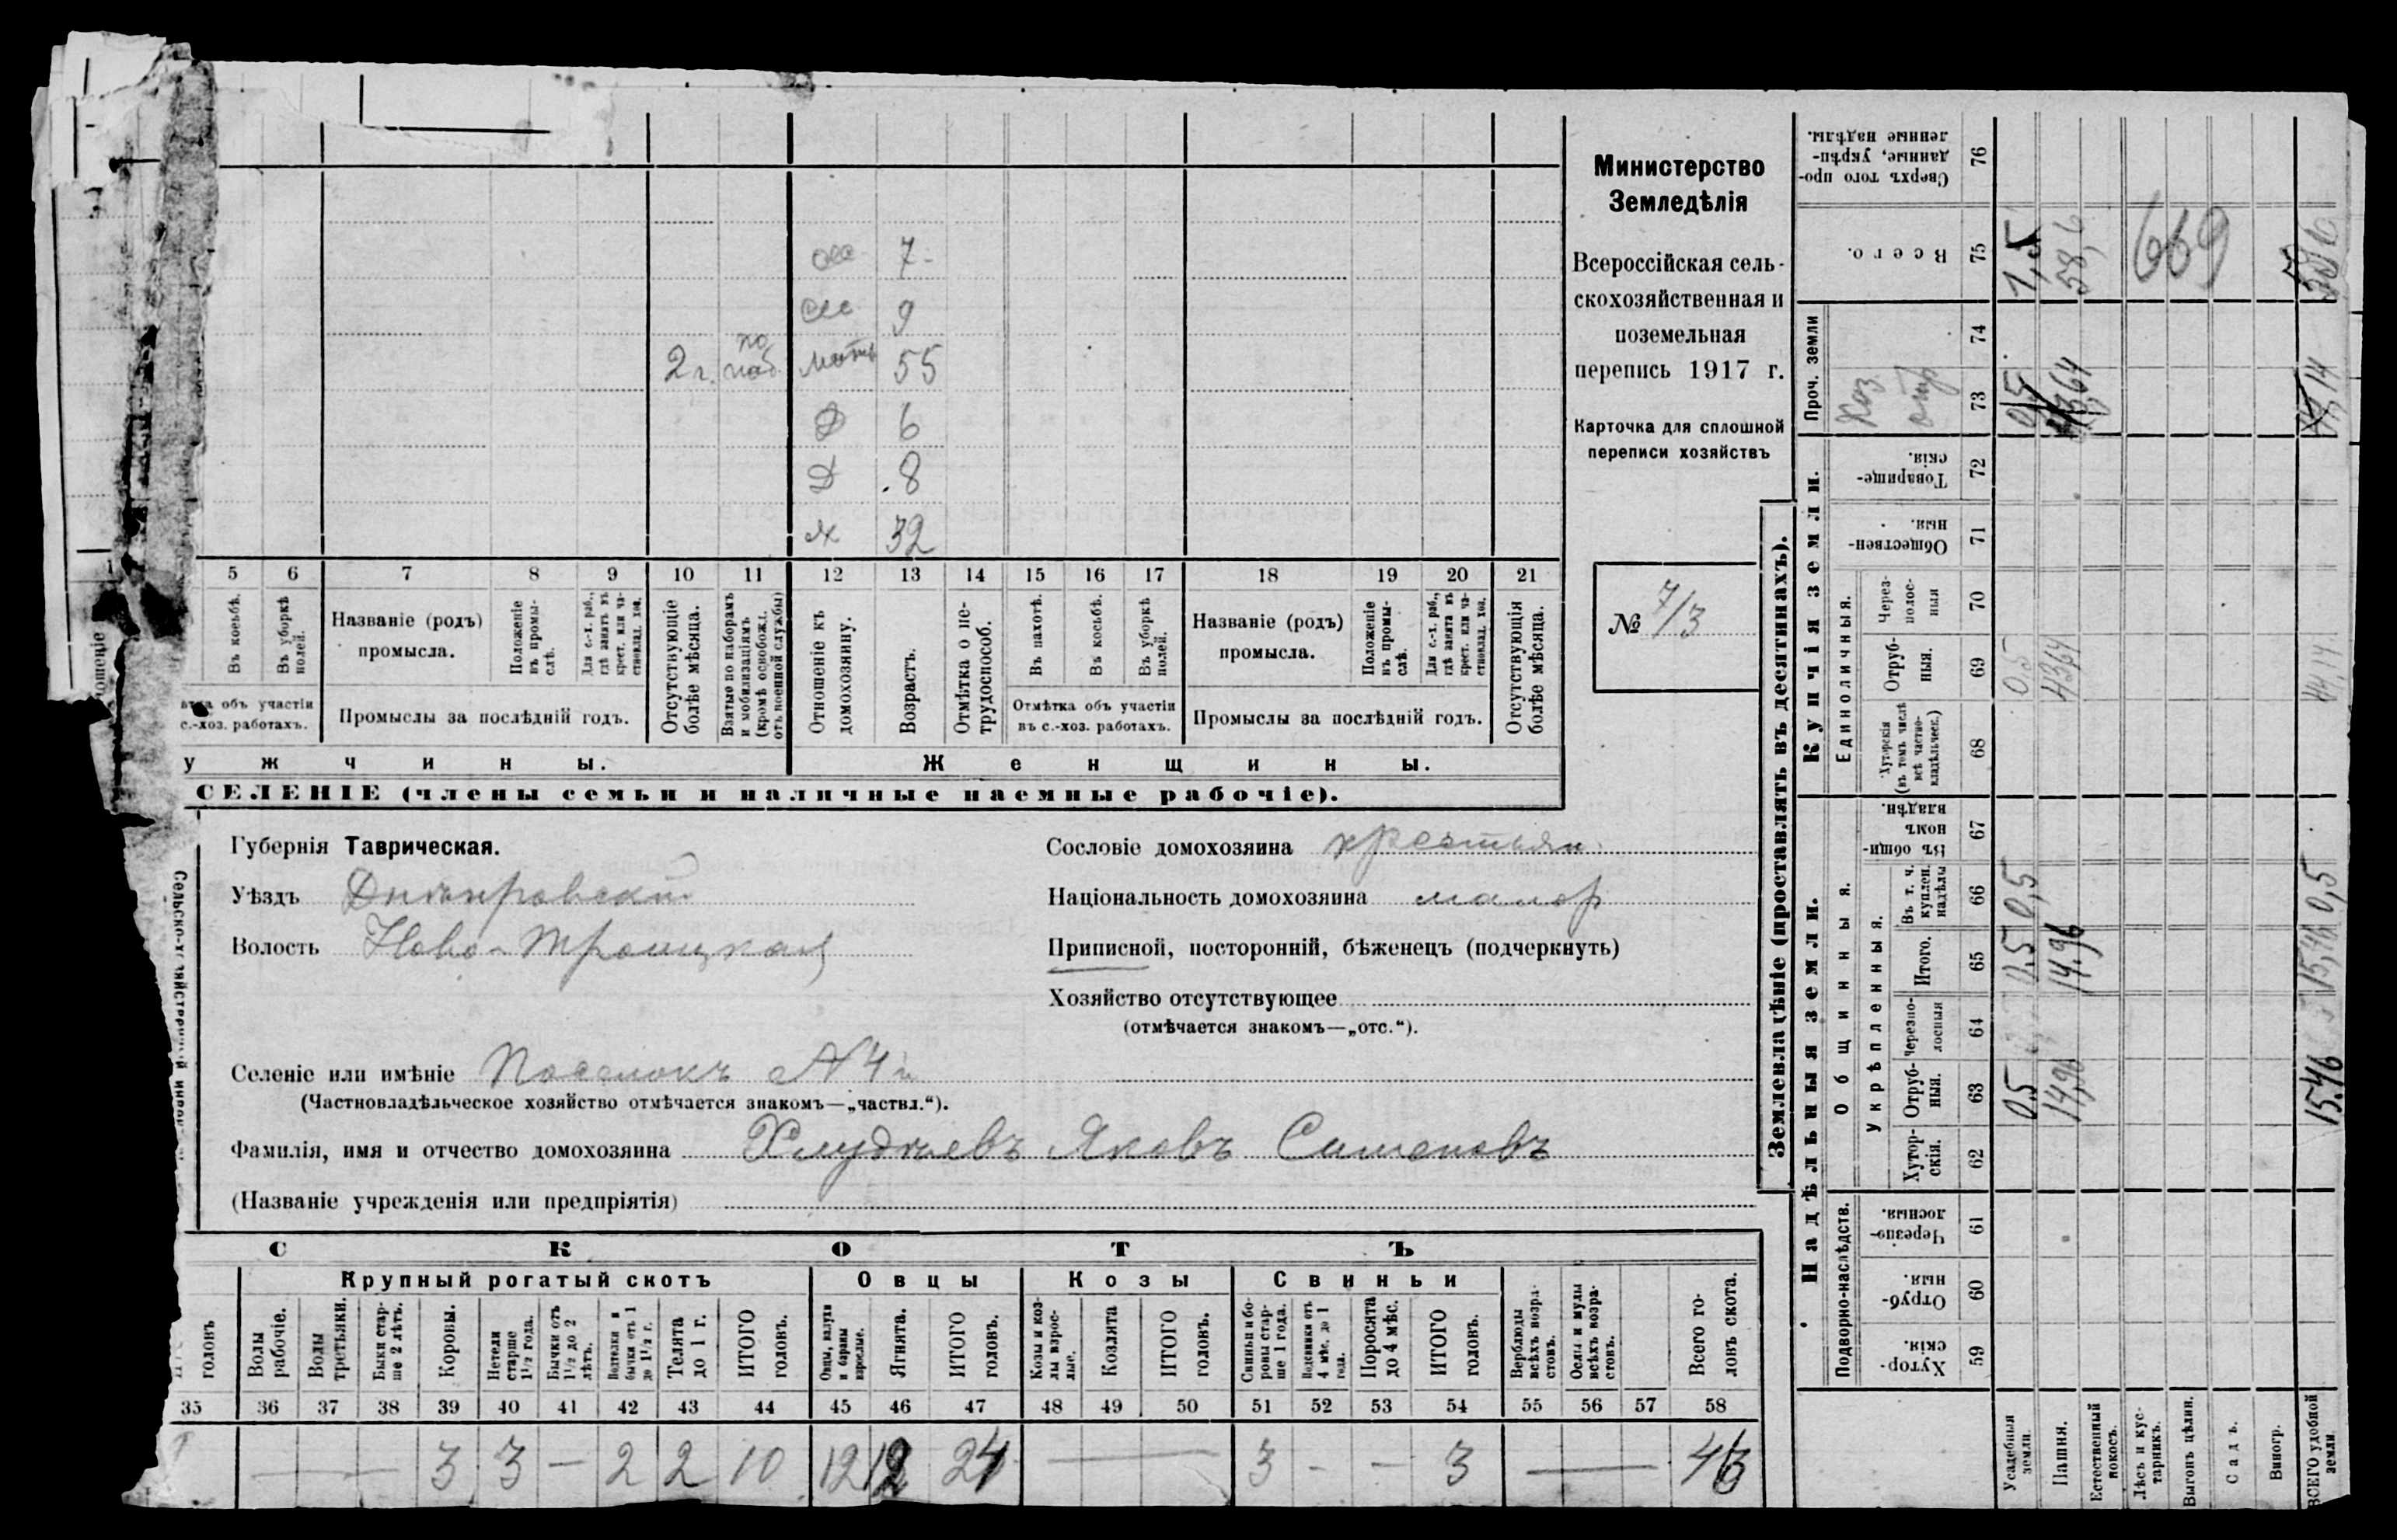 сес 7
сес 9
2 г. по моб. мать 55
Д 6
Д 8
ж 32
5 6 7 8 9 10 11 12 13 14 15 16 17 18 19 20 21
Въ косьбѣ.
Въ уборкѣ полей.
Названіе (родъ) промысла.
Положеніе въ промыслѣ.
Для с.-х. раб., гдѣ занятъ въ крест. или частновлад. хоз.
Отсутствующіе болѣе мѣсяца.
Взятые по наборамъ и мобилизаціямъ (кромѣ освобожд. отъ военной службы)
Отношеніе къ домохозяину.
Возрастъ.
Отмѣтка о нетрудоспособ.
Въ пахотѣ.
Въ косьбѣ.
Въ уборкѣ полей.
Названіе (родъ) промысла.
Положеніе въ промыслѣ.
Для с.-х. раб., гдѣ занята въ крест. или частновлад. хоз.
Отсутствующія болѣе мѣсяца.
объ участіи
с.-хоз. работахъ.
Промыслы за послѣдній годъ.
Отмѣтка объ участіи
въ с.-хоз. работахъ.
Промыслы за послѣдній годъ.
у ж ч и н ы.
Ж е н щ и н ы.
СЕЛЕНІЕ (члены семьи и наличные наемные рабочіе).
Министерство
Земледѣлія
Всероссійская сель-
скохозяйственная и
поземельная
перепись 1917 г.
Карточка для сплошной
переписи хозяйствъ
№ 7/3
Губернія Таврическая.
Уѣздъ Днѣпровскій
Волость Ново-Троицкая
Сословіе домохозяина крестьян.
Національность домохозяина малор
Приписной, посторонній, бѣженецъ (подчеркнуть)
Хозяйство отсутствующее
(отмѣчается знакомъ—„отс.“).
Селеніе или имѣніе Поселокъ №4й
(Частновладѣльческое хозяйство отмѣчается знакомъ—„частвл.“).
Фамилія, имя и отчество домохозяина Хлудневъ Яковъ Сименовъ
(Названіе учрежденія или предпріятія)
С К О Т Ъ
Крупный рогатый скотъ
Овцы
Козы
Свиньи
головъ
Волы рабочіе.
Волы третьяки.
Быки старше 2 лѣтъ.
Коровы.
Нетели старше 1½ года.
Бычки отъ 1½ до 2 лѣтъ.
бычки отъ 1 до 1½ г.
Телята до 1 г.
ИТОГО головъ.
Овцы, валухи и бараны взрослые.
Ягнята.
ИТОГО головъ.
Козы и козлы взрослые.
Козлята
ИТОГО головъ.
Свиньи и бороны старше 1 года.
Подсвинки отъ 4 мѣс. до 1 года.
Поросята до 4 мѣс.
ИТОГО головъ.
Верблюды всѣхъ возрастовъ.
Ослы и мулы всѣхъ возрастовъ.
Всего головъ скота.
35 36 37 38 39 40 41 42 43 44 45 46 47 48 49 50 51 52 53 54 55 56 57 58
— — 3 3 — 2 2 10 12 12 24 — 3 - - 3 — 43
Землевладѣніе (проставлять въ десятинахъ).
Надѣльныя земли.
Купчія земли.
Проч. земли
Подворно-наслѣдств.
Общинныя.
Укрѣпленныя.
Единоличныя.
Хуторскія.
Отрубныя.
Черезполосныя.
Хуторскія.
Отрубныя.
Черезполосныя
Итого.
Въ т. ч. куплен. надѣлы
Въ общинномъ владѣн.
Хуторскія (въ томъ числѣ всѣ частновладѣльческ.)
Отрубныя.
Черезполосныя
Общественныя.
Товарищескія.
Всего.
Сверхъ того проданные, укрѣпленные надѣлы.
59 60 61 62 63 64 65 66 67 68 69 70 71 72 73 74 75 76
Усадебныя земли. 0,5 0,5 0,5 0,5 0,5 1,5
Пашня. 14,96 14,96 43,64 43,64 58,6
Естественный покосъ.
Лѣсъ и кустарникъ.
669
Выгонъ цѣлин.
Садъ.
Виногр.
ВСЕГО удобной земли. 15.46 15,46 0,5 44,14 44,14